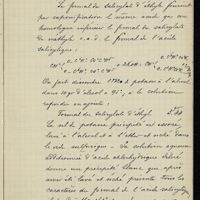 Le formal du salicylate d'éthyle fournit
par saponification le même acide que son
homologue inférieur le formal du salicylate
de méthyle c.à.d. le formal de l'acide
salicylique.
On fait dissoudre à potasse à l'alcool
dans 20gr d'alcool à 95°, & la solution
refroidie on ajoute
Formal du salicylate d'éthyle
Le sel de potasse précipité est essoré
lavé à l'alcool et à l'éther et séché dans le
vide sulfurique. La solution aqueuse
additionnée d'acide chlorhydrique dilué
donne un précipité blanc qui après
avoir été lavé et séché présente tous les
caractères du formal de l'acide salicylique